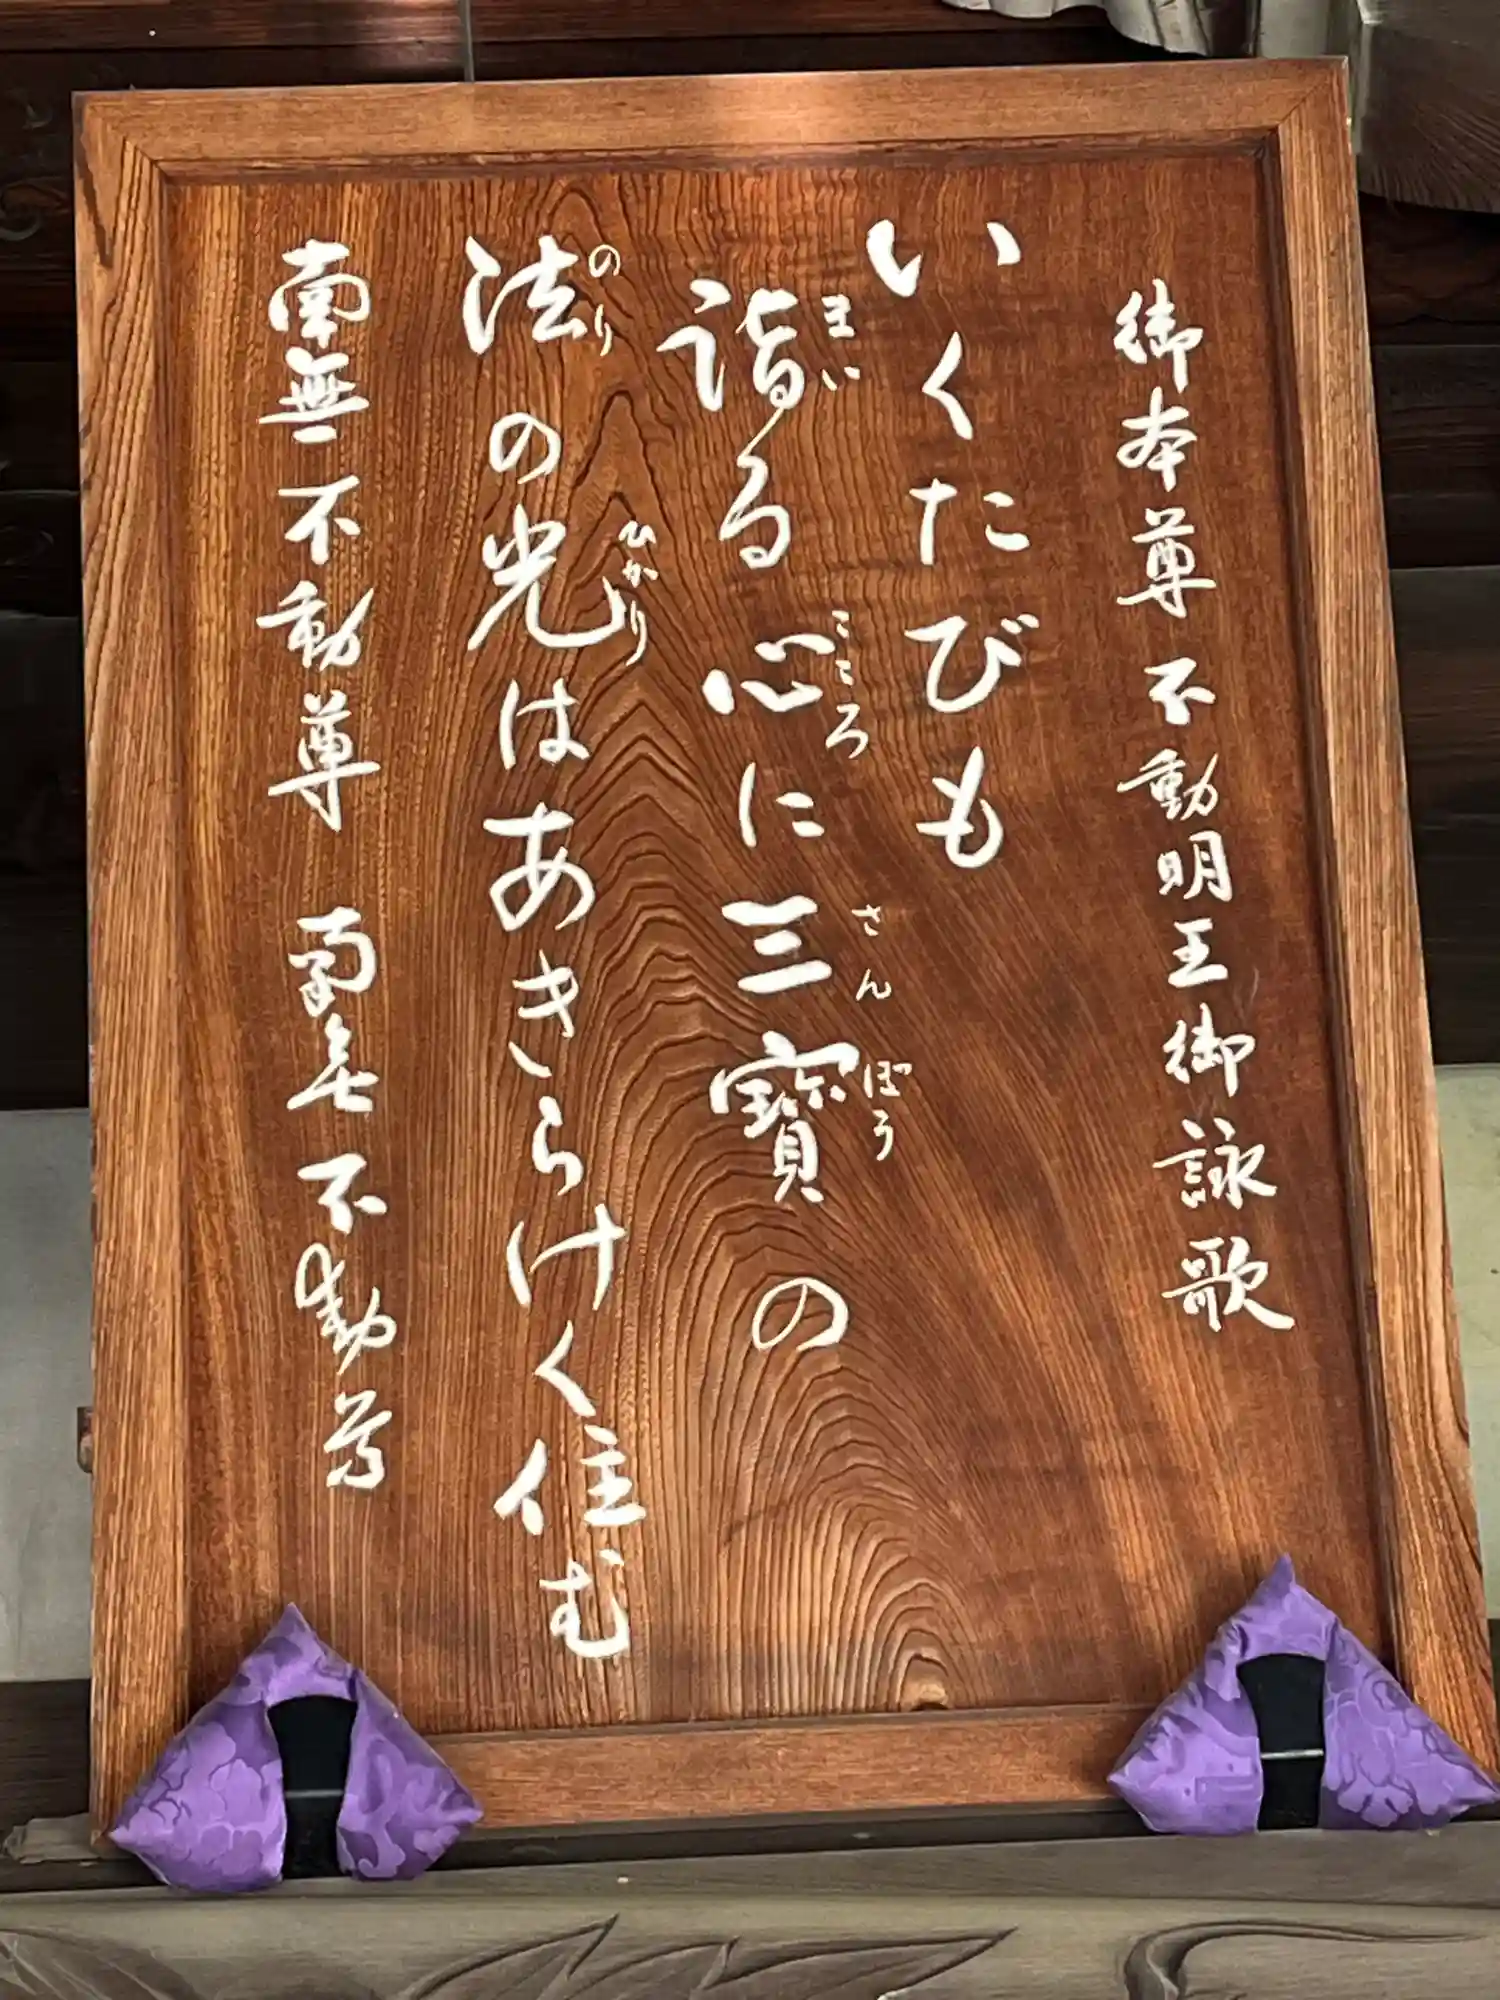 御本尊不動明王御詠歌
いくたびも
詣る心に三寳の
まい こころ さんぼう
法の光はあきらけく住む
のり ひかり
南無不動尊 南無不動尊